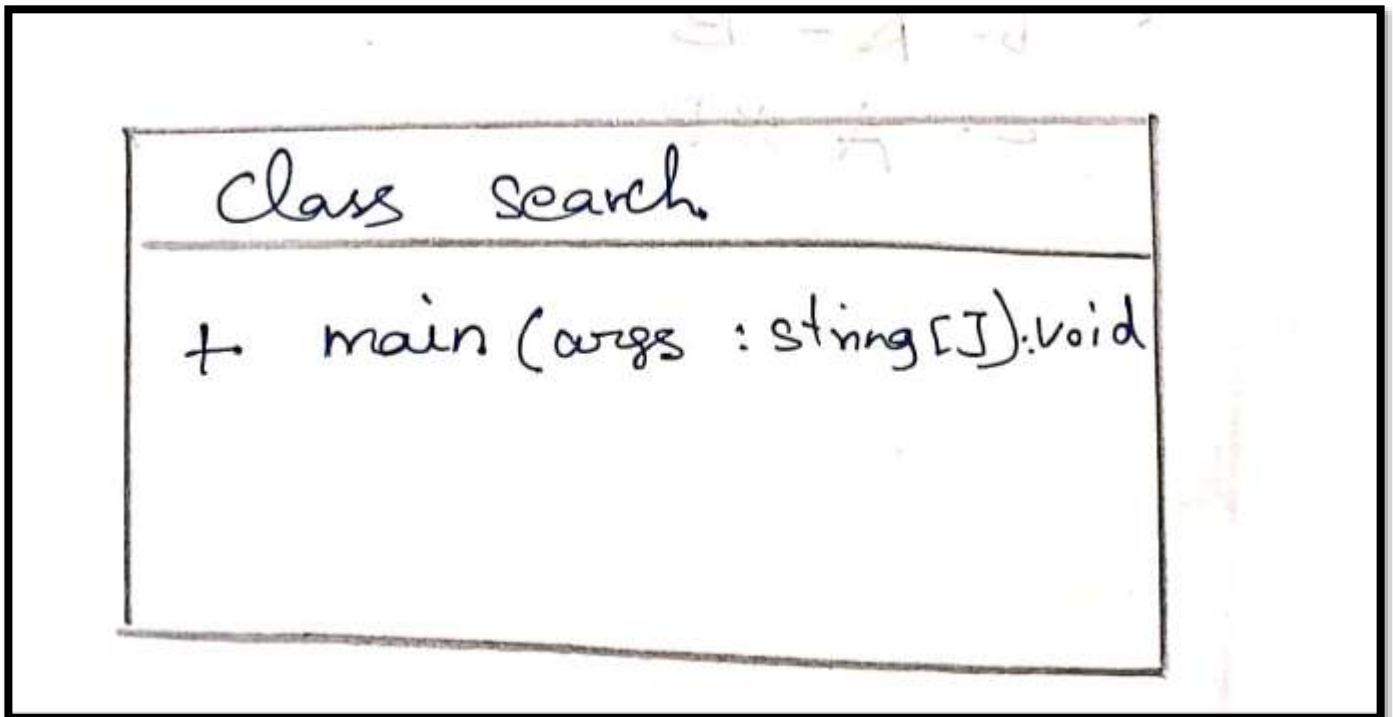 Class search.
+ main (args : string[]):void